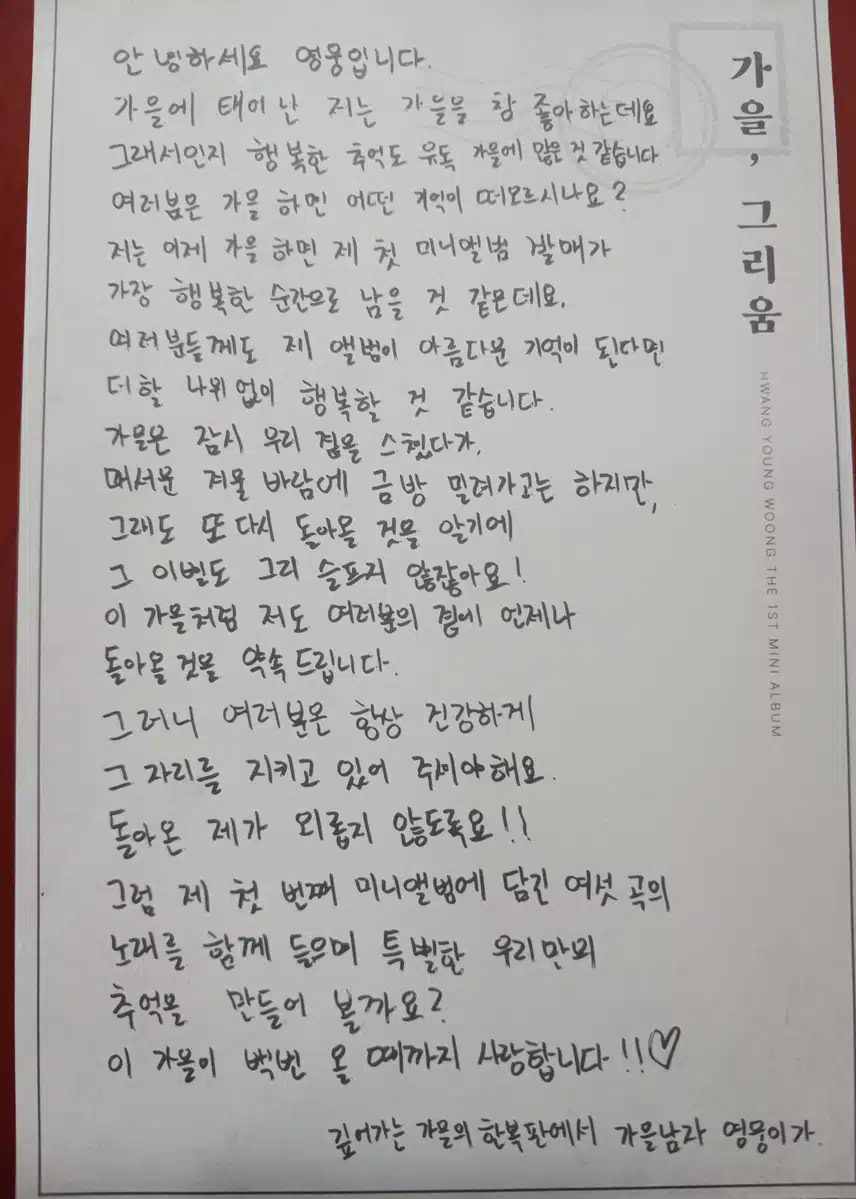 안녕하세요 영웅입니다.
가을에 태어난 저는 가을을 참 좋아하는데요
그래서인지 행복한 추억도 유독 가을에 많은 것 같습니다
여러분은 가을 하면 어떤 기억이 떠오르시나요?
저는 이제 가을 하면 제 첫 미니앨범 발매가
가장 행복한 순간으로 남을 것 같은데요,
여러분들께도 제 앨범이 아름다운 기억이 된다면
더할 나위없이 행복할 것 같습니다.
가을은 잠시 우리 곁을 스쳤다가,
매서운 겨울 바람에 금방 밀려가고는 하지만,
그래도 또다시 돌아올 것을 알기에
그 이별도 그리 슬프지 않잖아요!
이 가을처럼 저도 여러분의 곁에 언제나
돌아올것을 약속드립니다.
그러니 여러분은 항상 건강하게
그 자리를 지키고 있어 주셔야해요.
돌아온 제가 외롭지 않도록요!!
그럼 제 첫 번째 미니앨범에 담긴 여섯 곡의
노래를 함께 들으며 특별한 우리만의
추억을 만들어 볼까요?
이 가을이 백번 올 때까지 사랑합니다!!♡
깊어가는 가을의 한복판에서 가을남자 영웅이가.
가을, 그리움
HWANG YOUNG WOONG THE 1ST MINI ALBUM